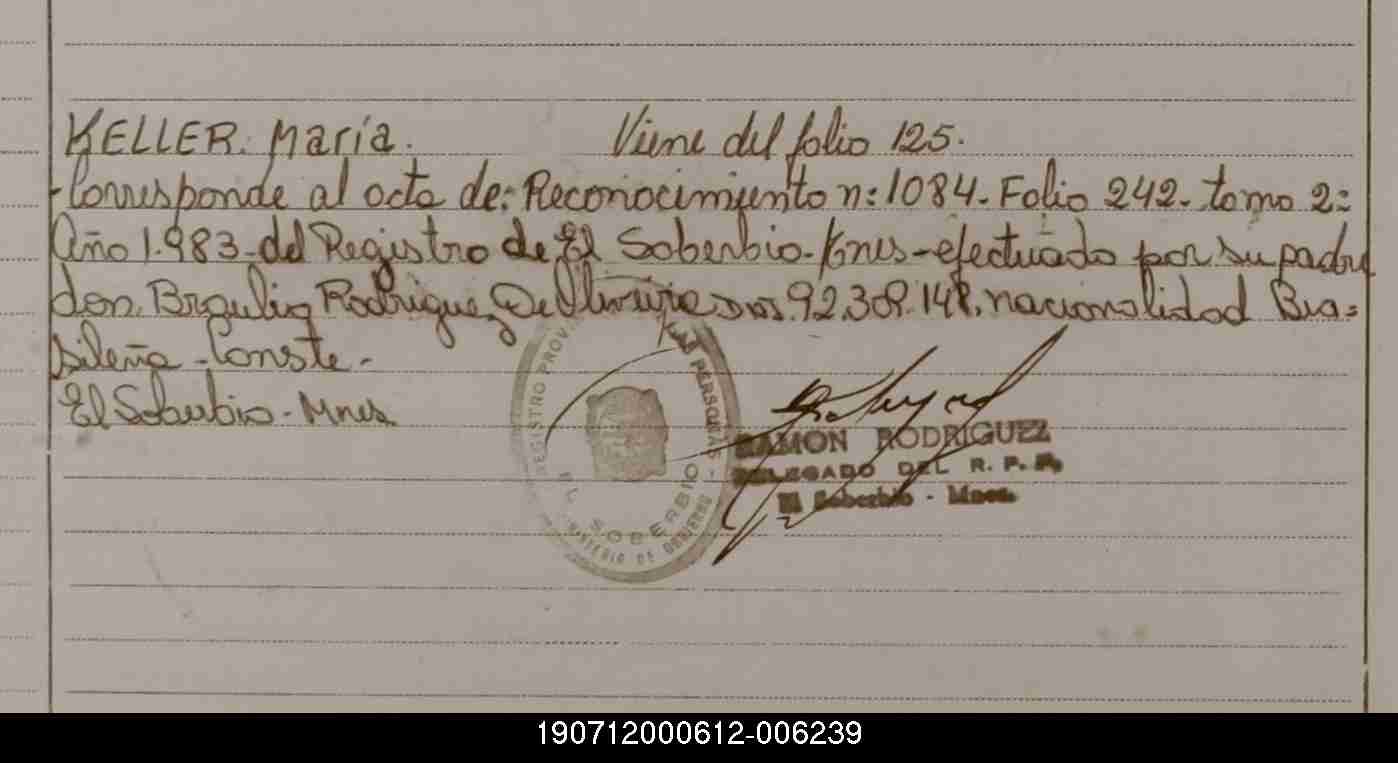 KELLER. María. Viene del folio 125.
-Corresponde al acta de: Reconocimiento n: 1084- Folio 242- tomo 2:
Año 1.983- del Registro de El Soberbio- Mnes- efectuado por su padre
don. Braulio Rodriguez De Oliveira DNI. 92.309.148, nacionalidad Bra=
sileña -Conste-
El Soberbio - Mnes
REGISTRO PROV. DE LAS PERSONAS -
EL SOBERBIO
MINISTERIO DE GOBIERNO
RAMON RODRIGUEZ
DELEGADO DEL R. P. P.
El Soberbio - Mnes.
190712000612-006239